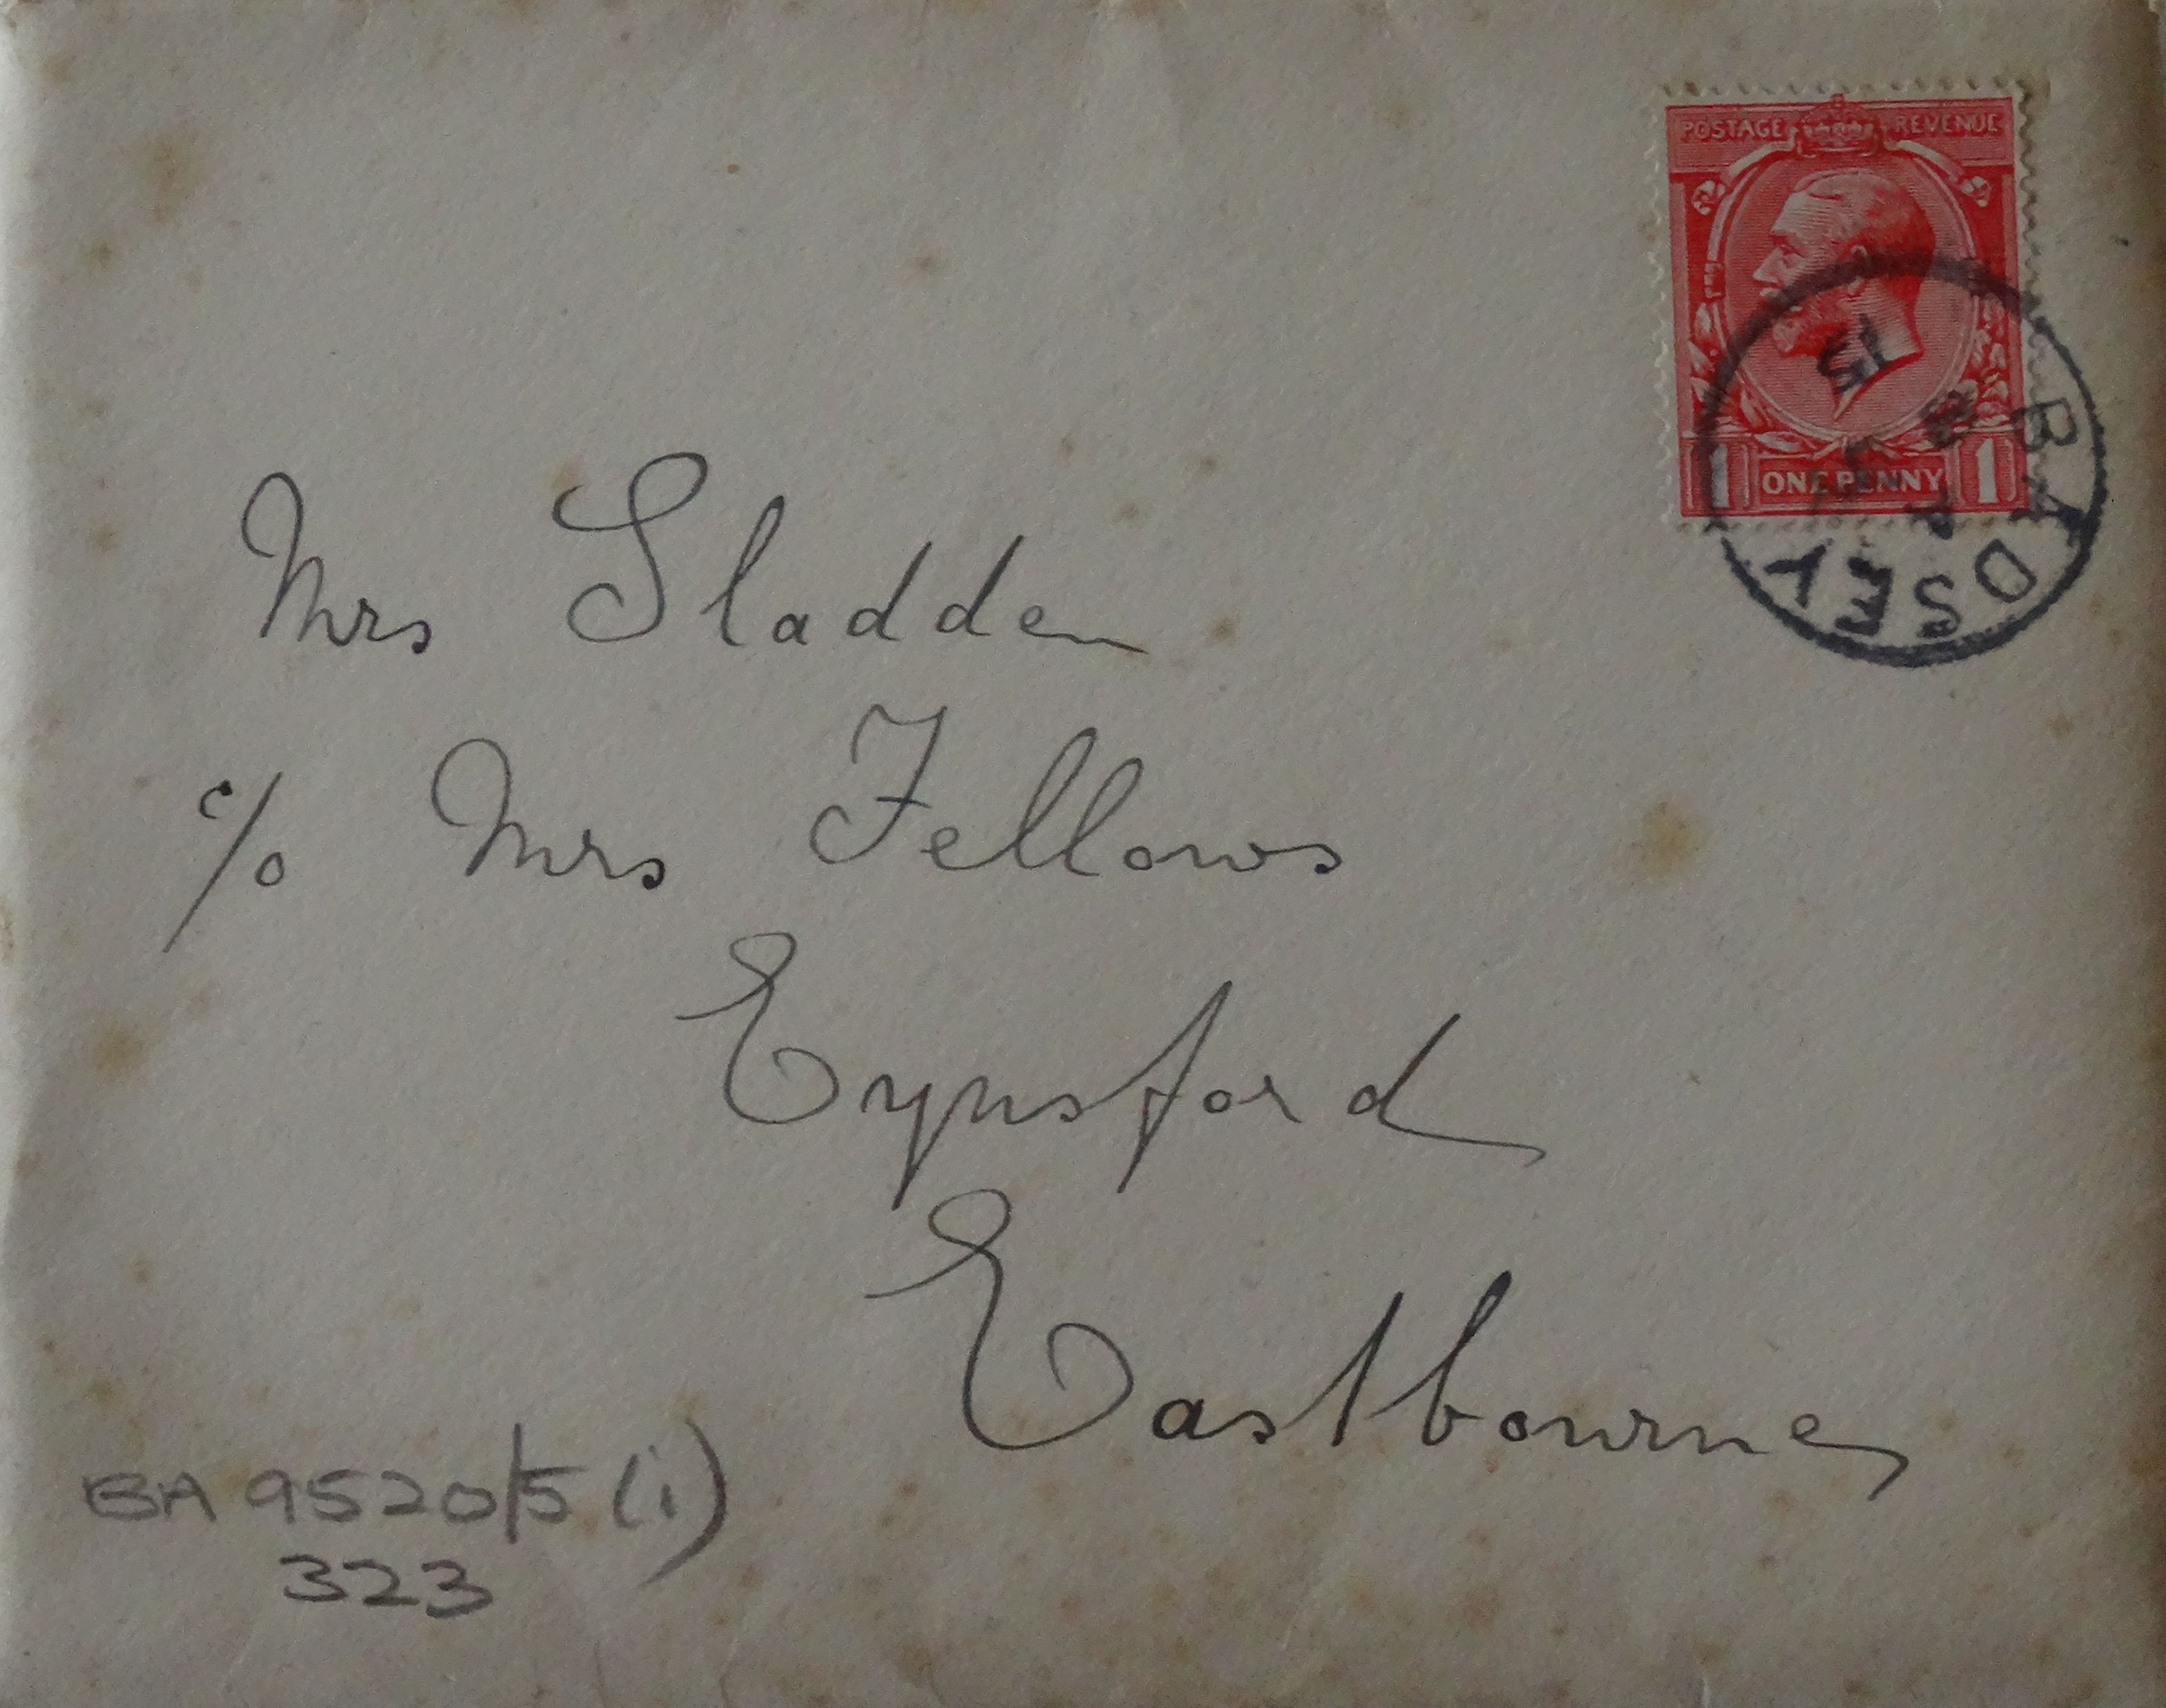 POSTAGE REVENUE
1 ONE PENNY 1
BADSEY
15
Mrs Sladden
c/o Mrs Fellows
Eynsford
Eastbourne
BA 9520/5 (i)
323